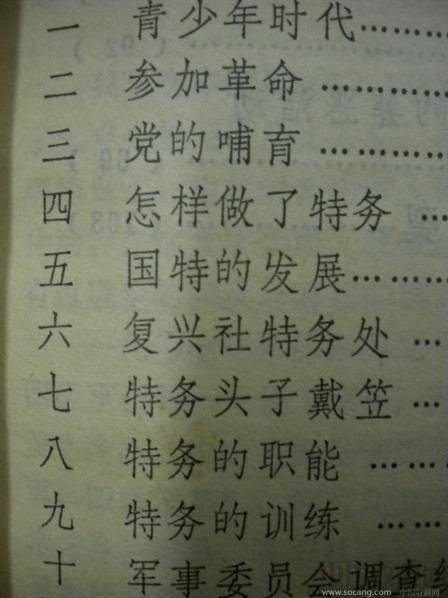 一 青少年时代………
二 参加革命…………
三 党的哺育…………
四 怎样做了特务……
五 国特的发展………
六 复兴社特务处……
七 特务头子戴笠……
八 特务的职能………
九 特务的训练………
十 军事委员会调查
www.socang.com